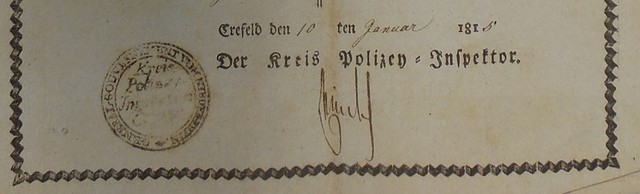 Crefeld den 10 ten Januar 1815
Der Kreis Polizey = Inspektor.
Kreis
Polizey